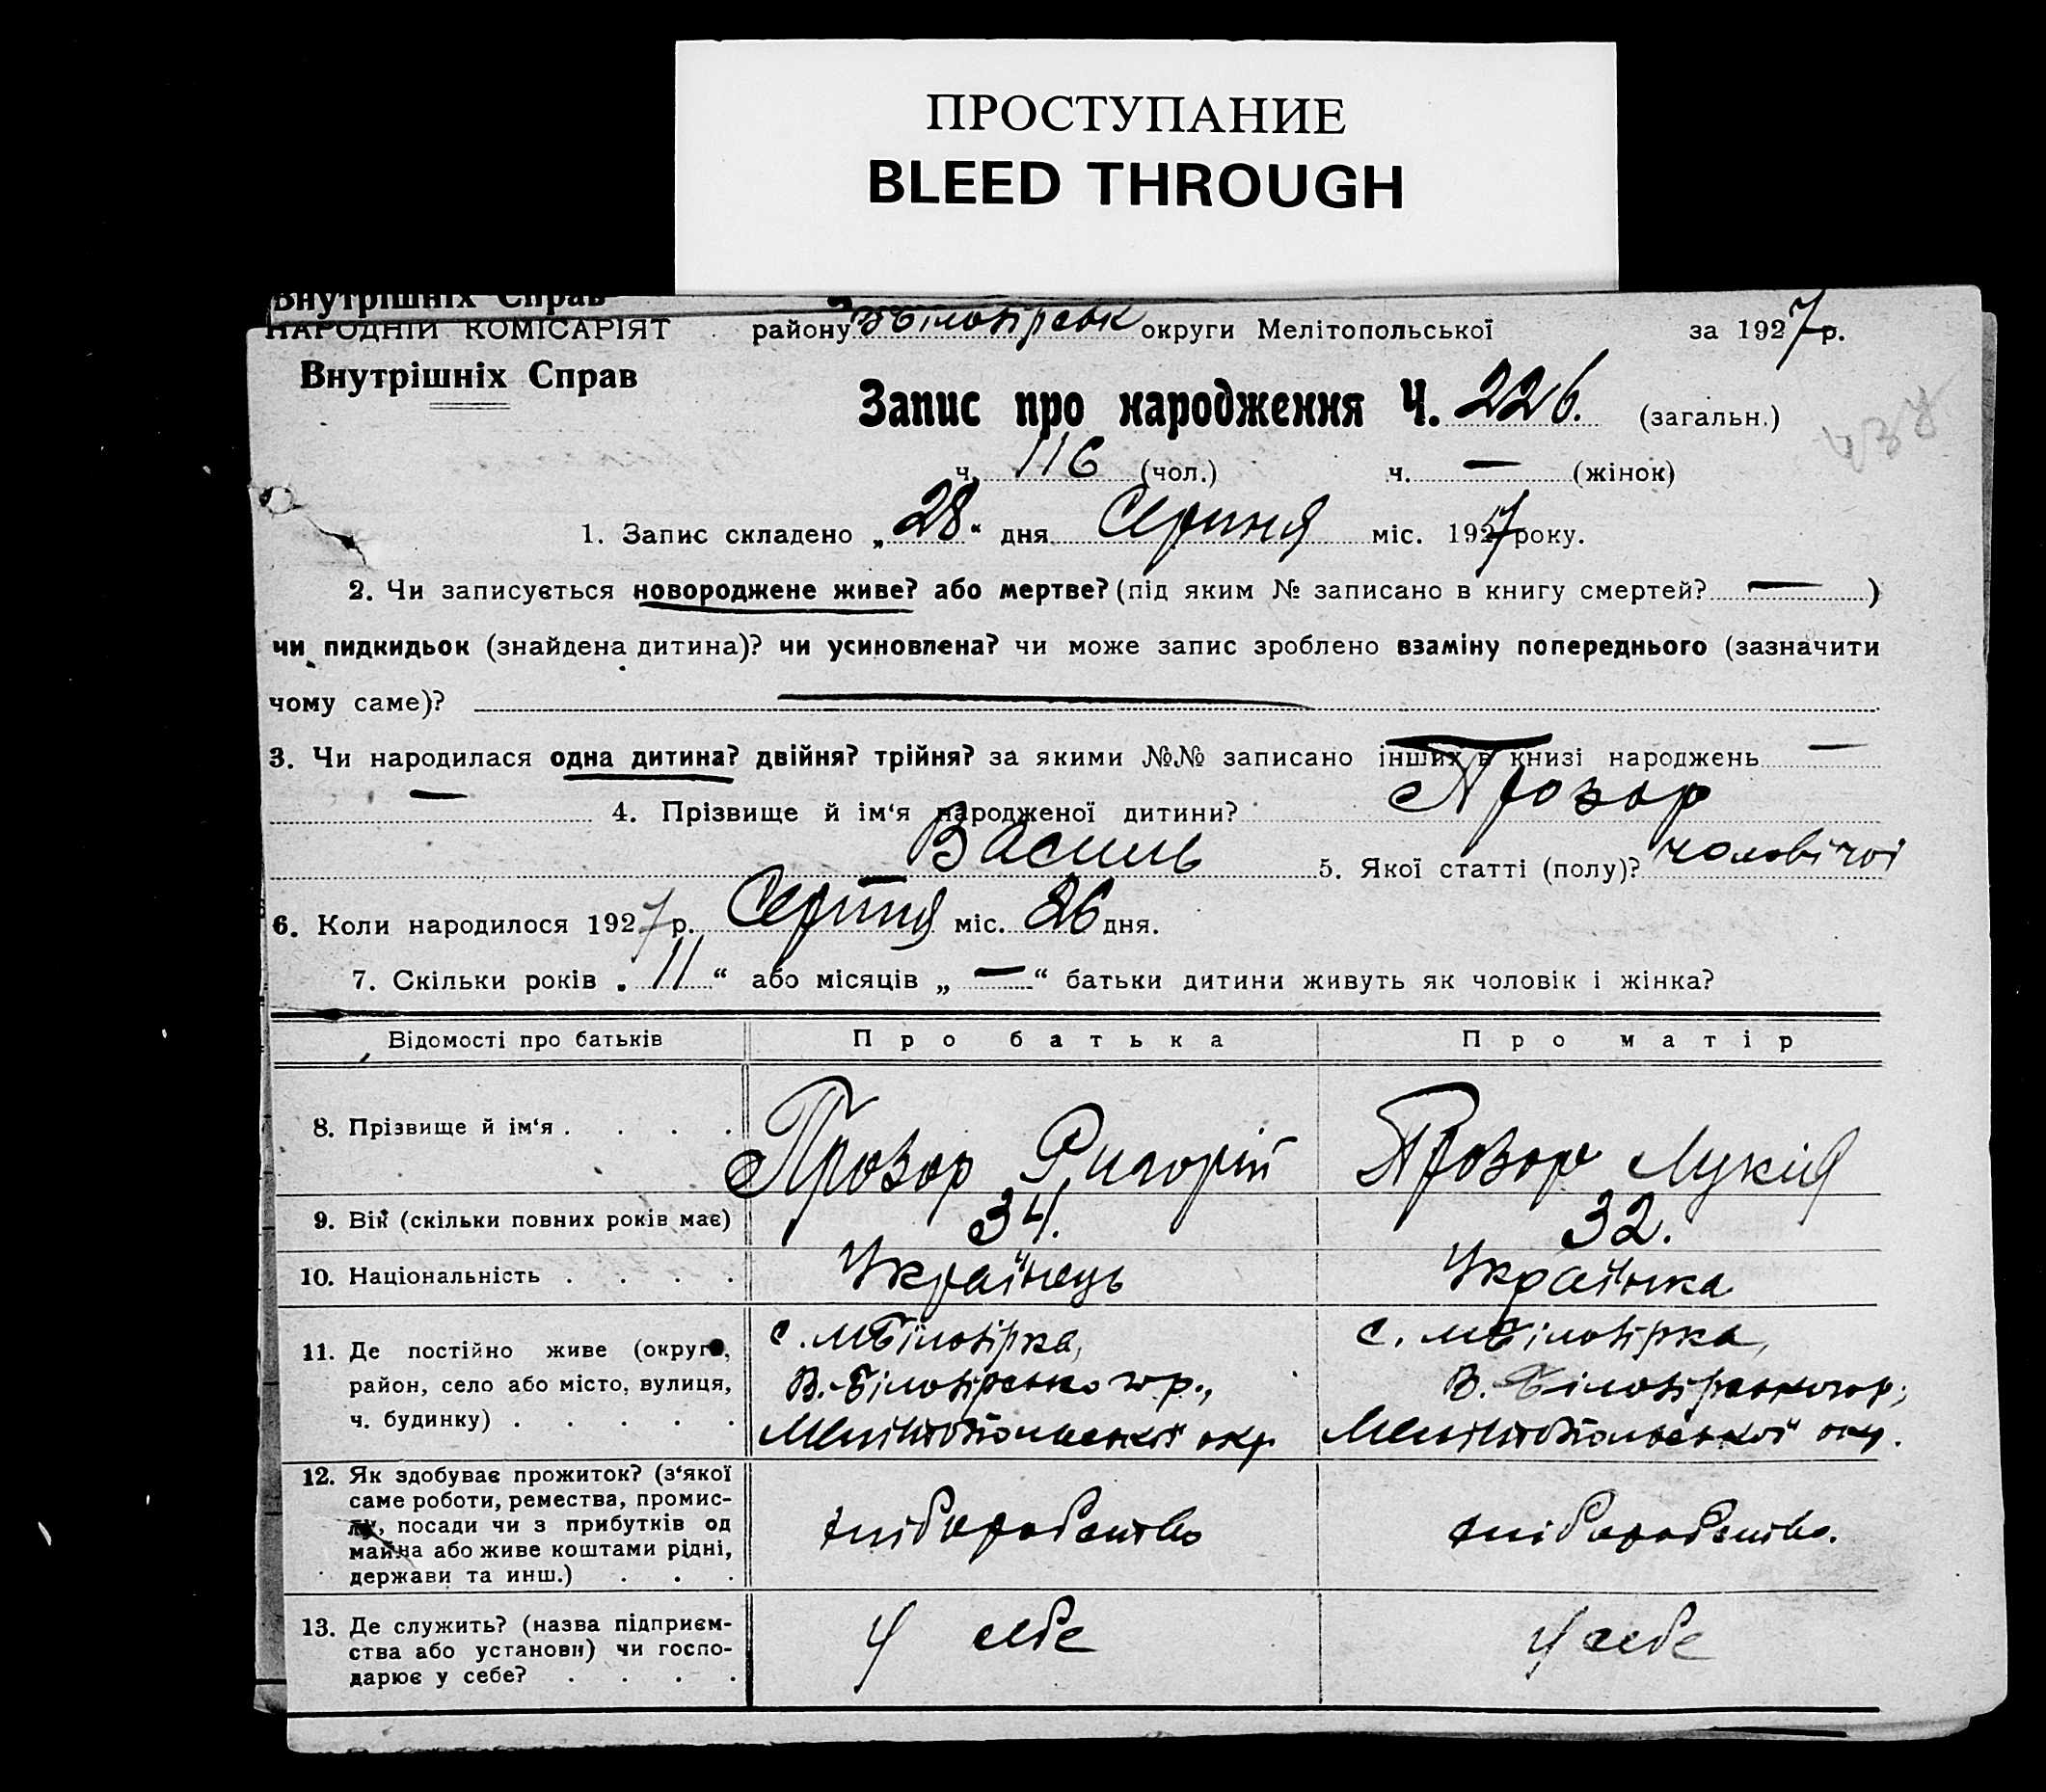 ПРОСТУПАНИЕ
BLEED THROUGH
Внутрішніх Справ
НАРОДНІЙ КОМІСАРІЯТ району В Білозірськ округи Мелітопольської за 1927 р.
Внутрішніх Справ
Запис про народження Ч. 226. (загальн.)
438
ч. 116 (чол.) ч. — (жінок)
1. Запис складено „28“ дня Серпня міс. 1927 року.
2. Чи записується новороджене живе? або мертве? (під яким № записано в книгу смертей? — )
чи пидкидьок (знайдена дитина)? чи усиновлена? чи може запис зроблено взаміну попереднього (зазначити
чому саме)? —
3. Чи народилася одна дитина? двійня? трійня? за якими №№ записано інших в книзі народжень —
— 4. Прізвище й ім‘я народженої дитини? Прозор
Василь 5. Якої статті (полу)? чоловічої
6. Коли народилося 1927 р. Серпня міс. 26 дня.
7. Скільки років „11“ або місяців „—“ батьки дитини живуть як чоловік і жінка?
Відомості про батьків Про батька Про матір
8. Прізвище й ім‘я . . . . Прозор Григорій Прозор Лукія
9. Вік (скільки повних років має) 34. 32.
10. Національність . . . . Українець Українка
11. Де постійно живе (округа, с. МБілозірка, с. МБілозірка,
район, село або місто, вулиця, В.-Білозірського р., В.-Білозірського р.,
ч. будинку) . . . . . Мелітопольської окр. Мелітопольської окр.
12. Як здобуває прожиток? (з‘якої
саме роботи, ремества, промис-
лу, посади чи з прибутків од хліборобство хліборобство.
майна або живе коштами рідні,
держави та инш.) . . .
13. Де служить? (назва підприєм-
ства або установи) чи госпо- У себе У себе
дарює у себе? . . . .